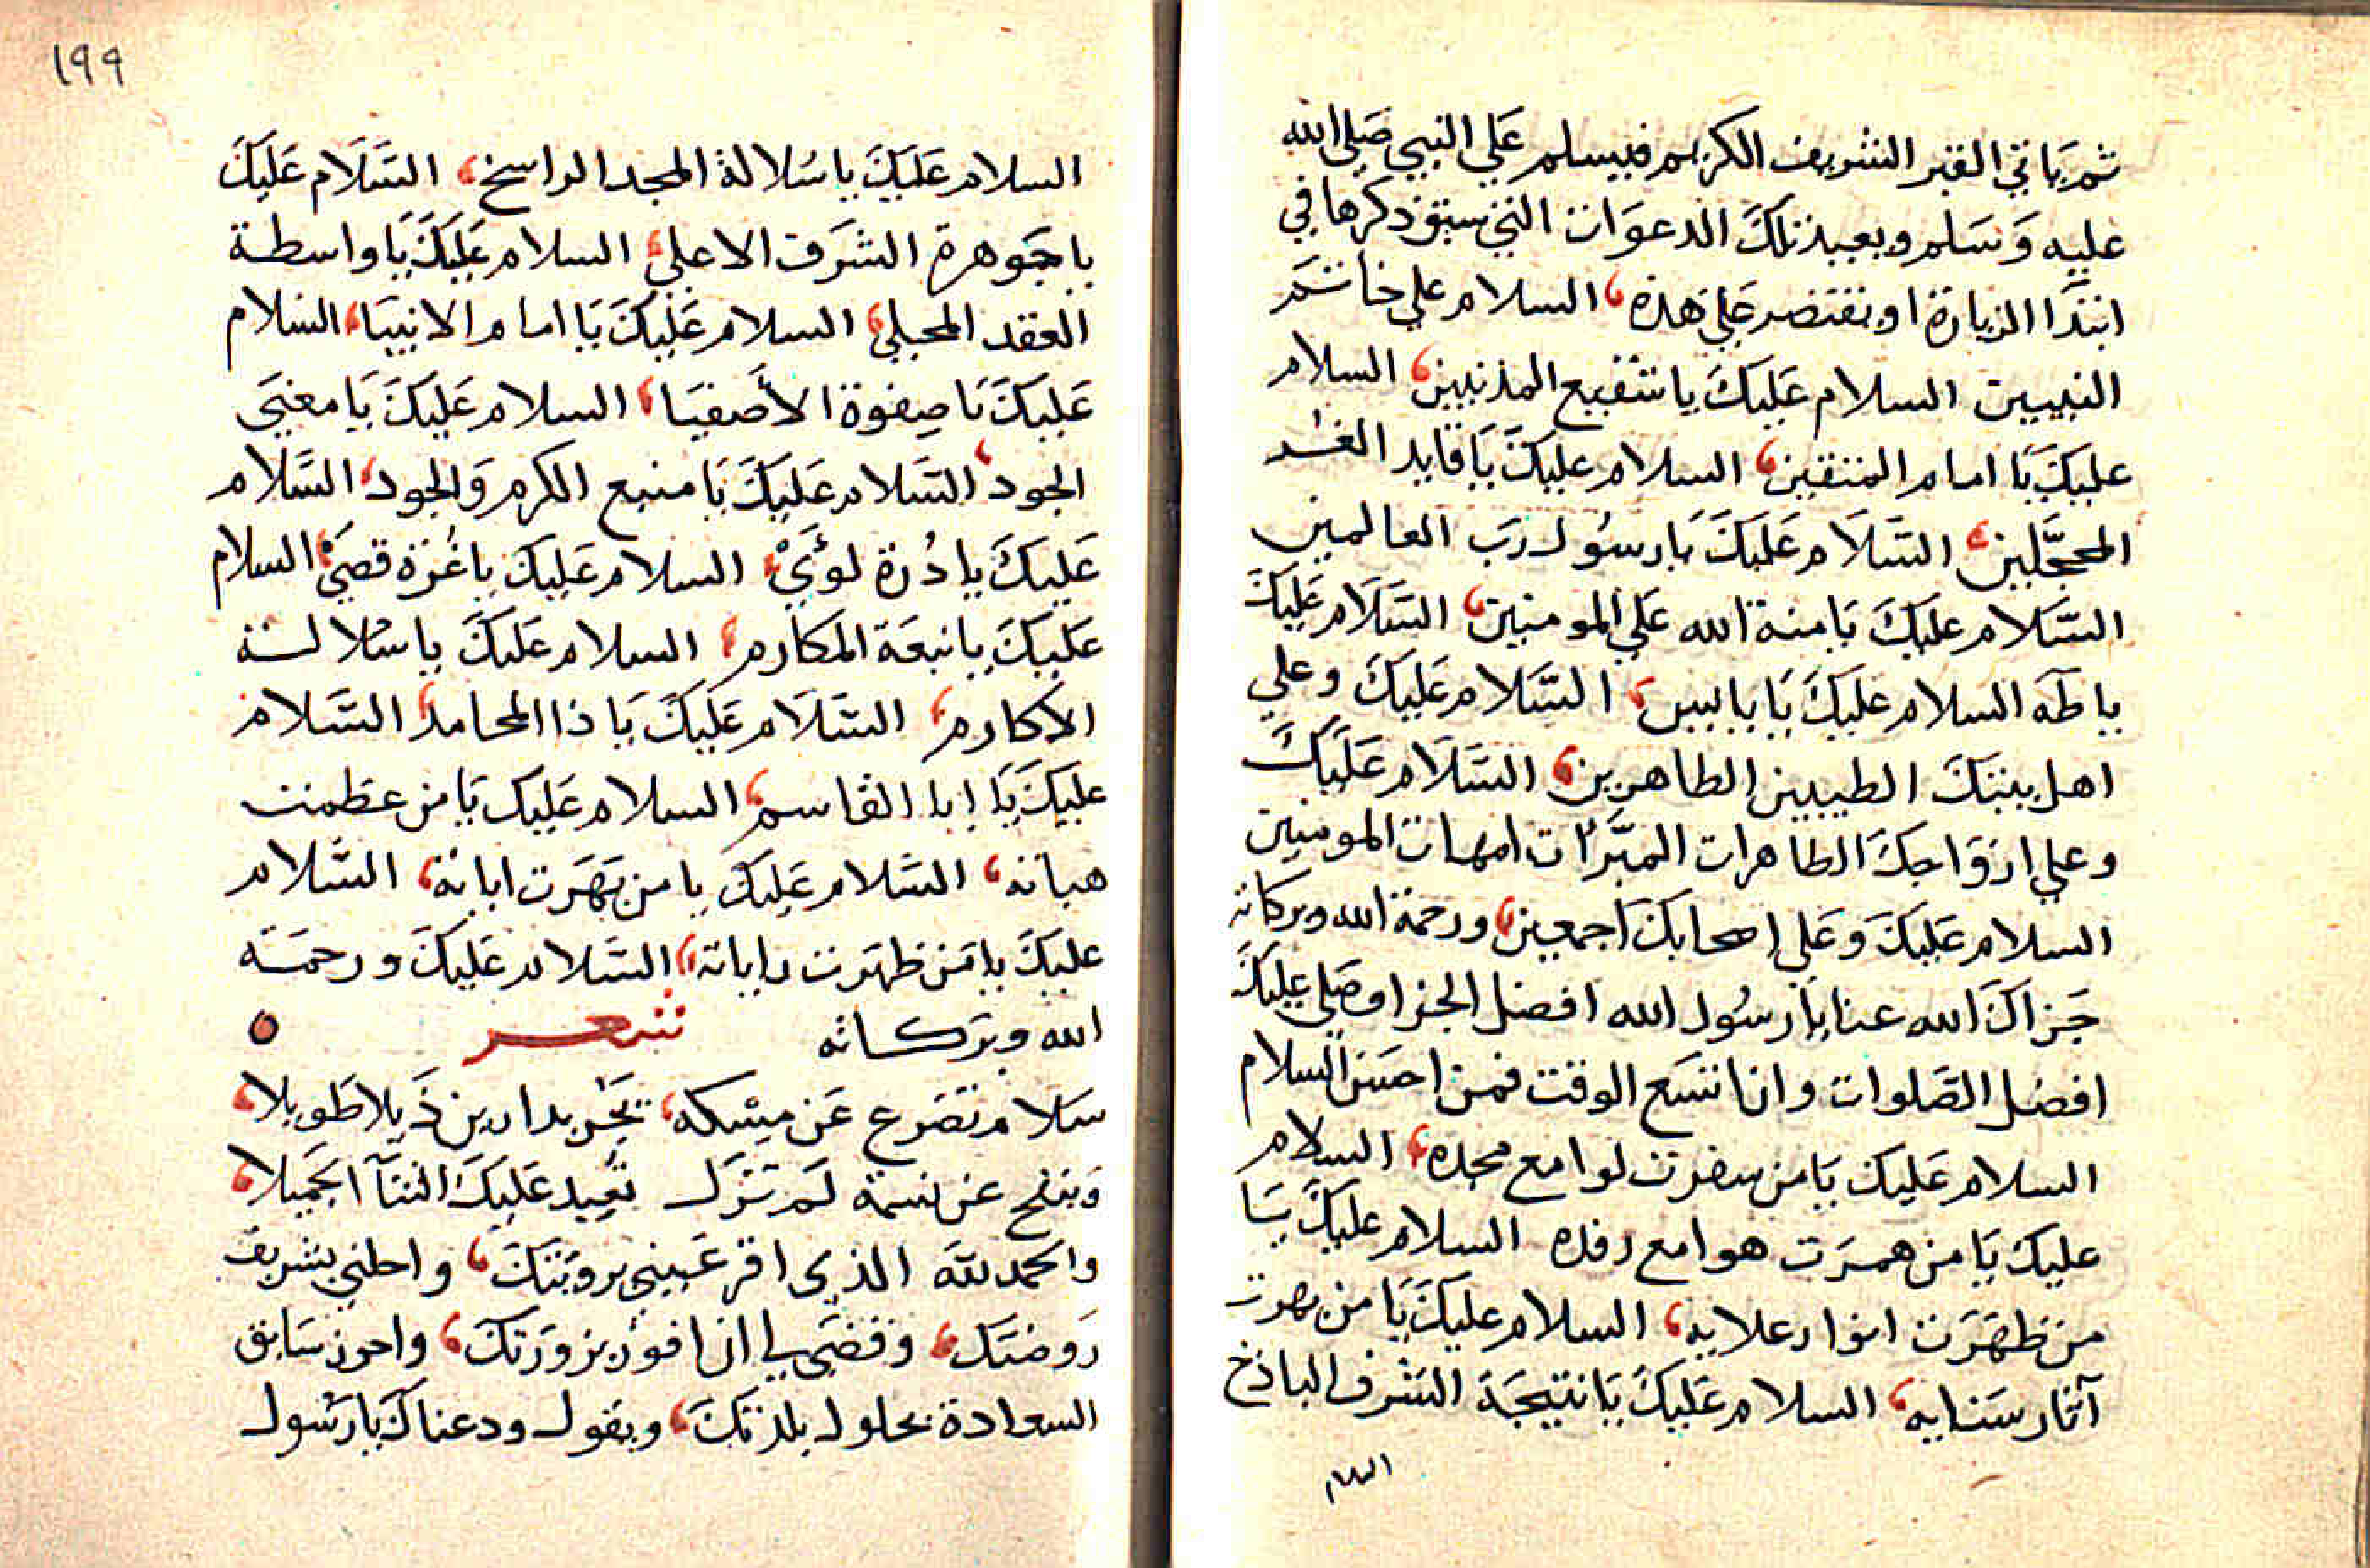 ثم ياتي القبر الشريف الكريم فيسلم علي النبي صلي الله
عليه وسلم ويعيد تلك الدعوات التي سبق ذكرها في
ابتدا الزيارة او يقتصر علي هذه، السلام علي خاتم
النبيين السلام عليك يا شفيع المذنبين، السلام
عليك يا امام المتقين، السلام عليك يا قايد الغر
المحجلين، السلام عليك يا رسول رب العالمين
السلام عليك يا منة الله علي المومنين، السلام عليك
يا طه السلام عليك يا يا يس، السلام عليك وعلي
اهل بيتك الطيبين الطاهرين، السلام عليك
وعلي ازواجك الطاهرات المبرّات امهات المومنين
السلام عليك وعلي اصحابك اجمعين، ورحمة الله وبركاته
جزاك الله عنا يا رسول الله افضل الجزا وصلي عليك
افضل الصلوات وان اتسع الوقت فمن احسن السلام
السلام عليك يا من سفرت لوامع مجده، السلام
عليك يا من همرت هوامع رفده السلام عليك يا
من ظهرت انوار علايه، السلام عليك يا من بهرت
آثار سنايه، السلام عليك يا نتيجة الشرف الباذخ
السلام
١٩٩
السلام عليك يا سلالة المجد الراسخ، السلام عليك
يا جوهرة الشرف الاعلي، السلام عليك يا واسطة
العقد المحلي، السلام عليك يا امام الانبيا، السلام
عليك يا صفوة الأصفيا، السلام عليك يا معني
الجود، السلام عليك يا منبع الكرم والجود، السلام
عليك يا دُرة لؤي، السلام عليك يا غُرة قصي، السلام
عليك يا نبعة المكارم، السلام عليك يا سلالة
الاكارم، السلام عليك يا ذا المحامد، السلام
عليك يا ابا القاسم، السلام عليك يا من عظمت
هباته، السلام عليك يا من بهرت اياته، السلام
عليك يا من ظهرت راياته، السلام عليك ورحمة
الله وبركاته شعر
سلام تضوع عن مسكه، يجر بدارين ذيلا طويلا،
وينفح عن نسمة لم تزل تعيد عليك الثنآ الجميلا،
والحمد لله الذي اقر عيني برويتك، واحلني بشريف
روضتك، وقضي لي ان افوز بزورتك، واحوز سابق
السعادة بحلول بلدتك، ويقول ودعناك يا رسول